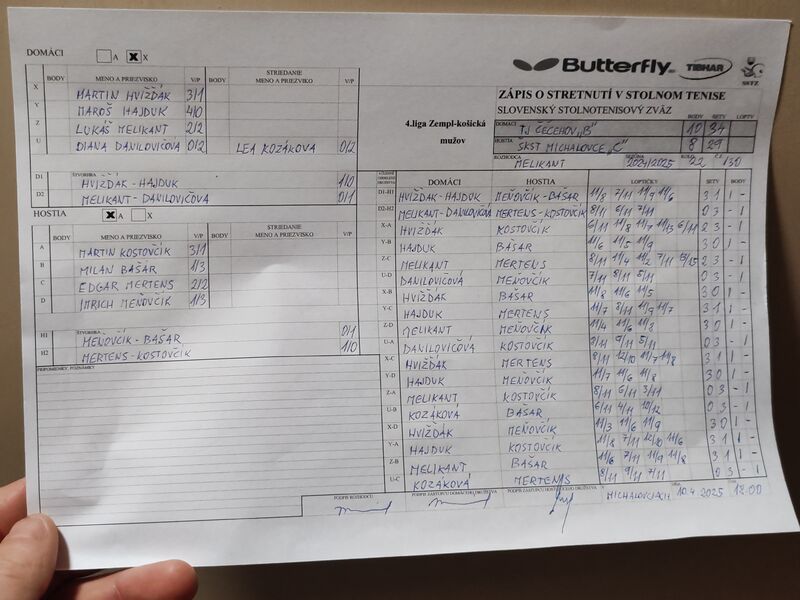 DOMÁCI A X X
BODY MENO A PRIEZVISKO V/P BODY STRIEDANIE MENO A PRIEZVIKO V/P
X MARTIN HVIŽĎÁK 3/1
Y MAROŠ HAJDUK 4/0
Z LUKÁŠ MELIKANT 2/2
U DIANA DANILOVIČOVÁ 0/2 LEA KOZÁKOVA 0/2
ŠTVORHRA
D1 HVIŽĎAK - HAJDUK 1/0
D2 MELIKANT - DANILOVIČOVA 0/1
HOSTIA X A X
BODY MENO A PRIEZVISKO V/P BODY STRIEDANIE MENO A PRIEZVIKO V/P
A MARTIN KOSTOVČÍK 3/1
B MILAN BAŠÁR 1/3
C EDGAR MERTENS 2/2
D IMRICH MEŇOVČÍK 1/3
ŠTVORHRA
H1 MEŇOVČÍK - BAŠAR 0/1
H2 MERTENS - KOSTOVČÍK 1/0
PRIPOMIENKY, POZNÁMKY
Butterfly TIBHAR SSTZ
ZÁPIS O STRETNUTÍ V STOLNOM TENISE
SLOVENSKÝ STOLNOTENISOVÝ ZVÄZ
4.liga Zempl-košická mužov
BODY SETY LOPTY
DOMÁCI TJ ČEČEHOV „B" 10 34
HOSTIA ŠKST MICHALOVCE „C" 8 29
ROZHODCA MELIKANT SEZÓNA 2024/2025 KOLO 22 Č.
DOMÁCI HOSTIA LOPTIČKY SETY BODY
D1-H1 HVIŽĎAK-HAJDUK MEŇOVČÍK-BAŠAR 11/8 7/11 11/9 11/6 3 1 1 -
D2-H2 MELIKANT-DANILOVIČOVÁ MERTENS-KOSTOVČÍK 8/11 6/11 7/11 0 3 - 1
X-A HVIŽĎÁK KOSTOVČÍK 6/11 11/8 11/7 11/13 6/11 2 3 - 1
Y-B HAJDUK BAŠAR 11/6 11/5 11/9 3 0 1 -
Z-C MELIKANT MERTENS 8/11 11/4 11/2 7/11 13/15 2 3 - 1
U-D DANILOVIČOVÁ MEŇOVČÍK 7/11 8/11 5/11 0 3 - 1
X-B HVIŽĎAK BAŠAR 11/8 11/6 11/5 3 0 1 -
Y-C HAJDUK MERTENS 11/7 8/11 11/9 11/7 3 1 1 -
Z-D MELIKANT MEŇOVČÍK 11/4 11/6 11/8 3 0 1 -
U-A DANILOVIČOVÁ KOSTOVČÍK 9/11 5/11 0 3 - 1
X-C HVIŽĎÁK MERTENS 8/11 12/10 11/7 11/8 3 1 1 -
Y-D HAJDUK MEŇOVČÍK 11/7 11/6 11/8 3 0 1 -
Z-A MELIKANT KOSTOVČÍK 8/11 6/11 3/11 0 3 - 1
U-B KOZÁKOVÁ BAŠAR 6/11 4/11 10/12 0 3 - 1
X-D HVIŽĎÁK MEŇOVČÍK 11/3 11/6 11/9 3 0 1 -
Y-A HAJDUK KOSTOVČÍK 11/8 7/11 12/10 11/6 3 1 1 -
Z-B MELIKANT BAŠAR 11/6 7/11 11/9 11/8 3 1 1 -
U-C KOZÁKOVÁ MERTENS 8/11 9/11 7/11 0 3 - 1
PODPIS ROZHODCU PODPIS ZÁSTUPCU DOMÁCEHO DRUŽSTVA PODPIS ZÁSTUPCU HOSTIUCEHO DRUŽSTVA V MICHALOVCIACH 10.4.2025